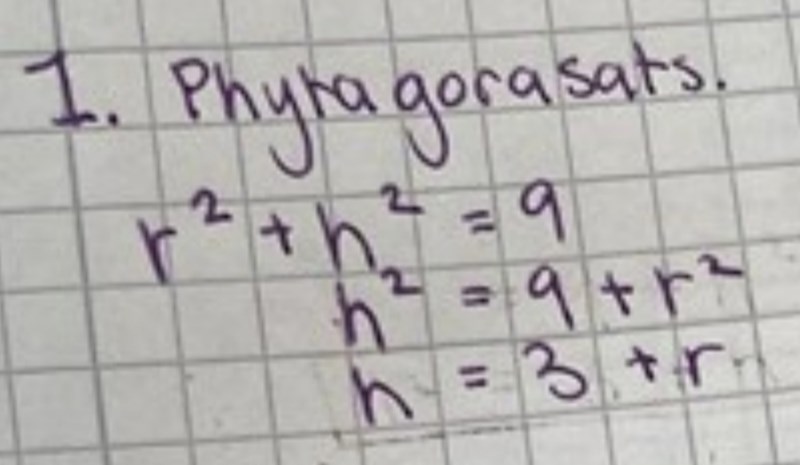 1. Phytagorasats.
r² + h² = 9
h² = 9 + r²
h = 3 + r